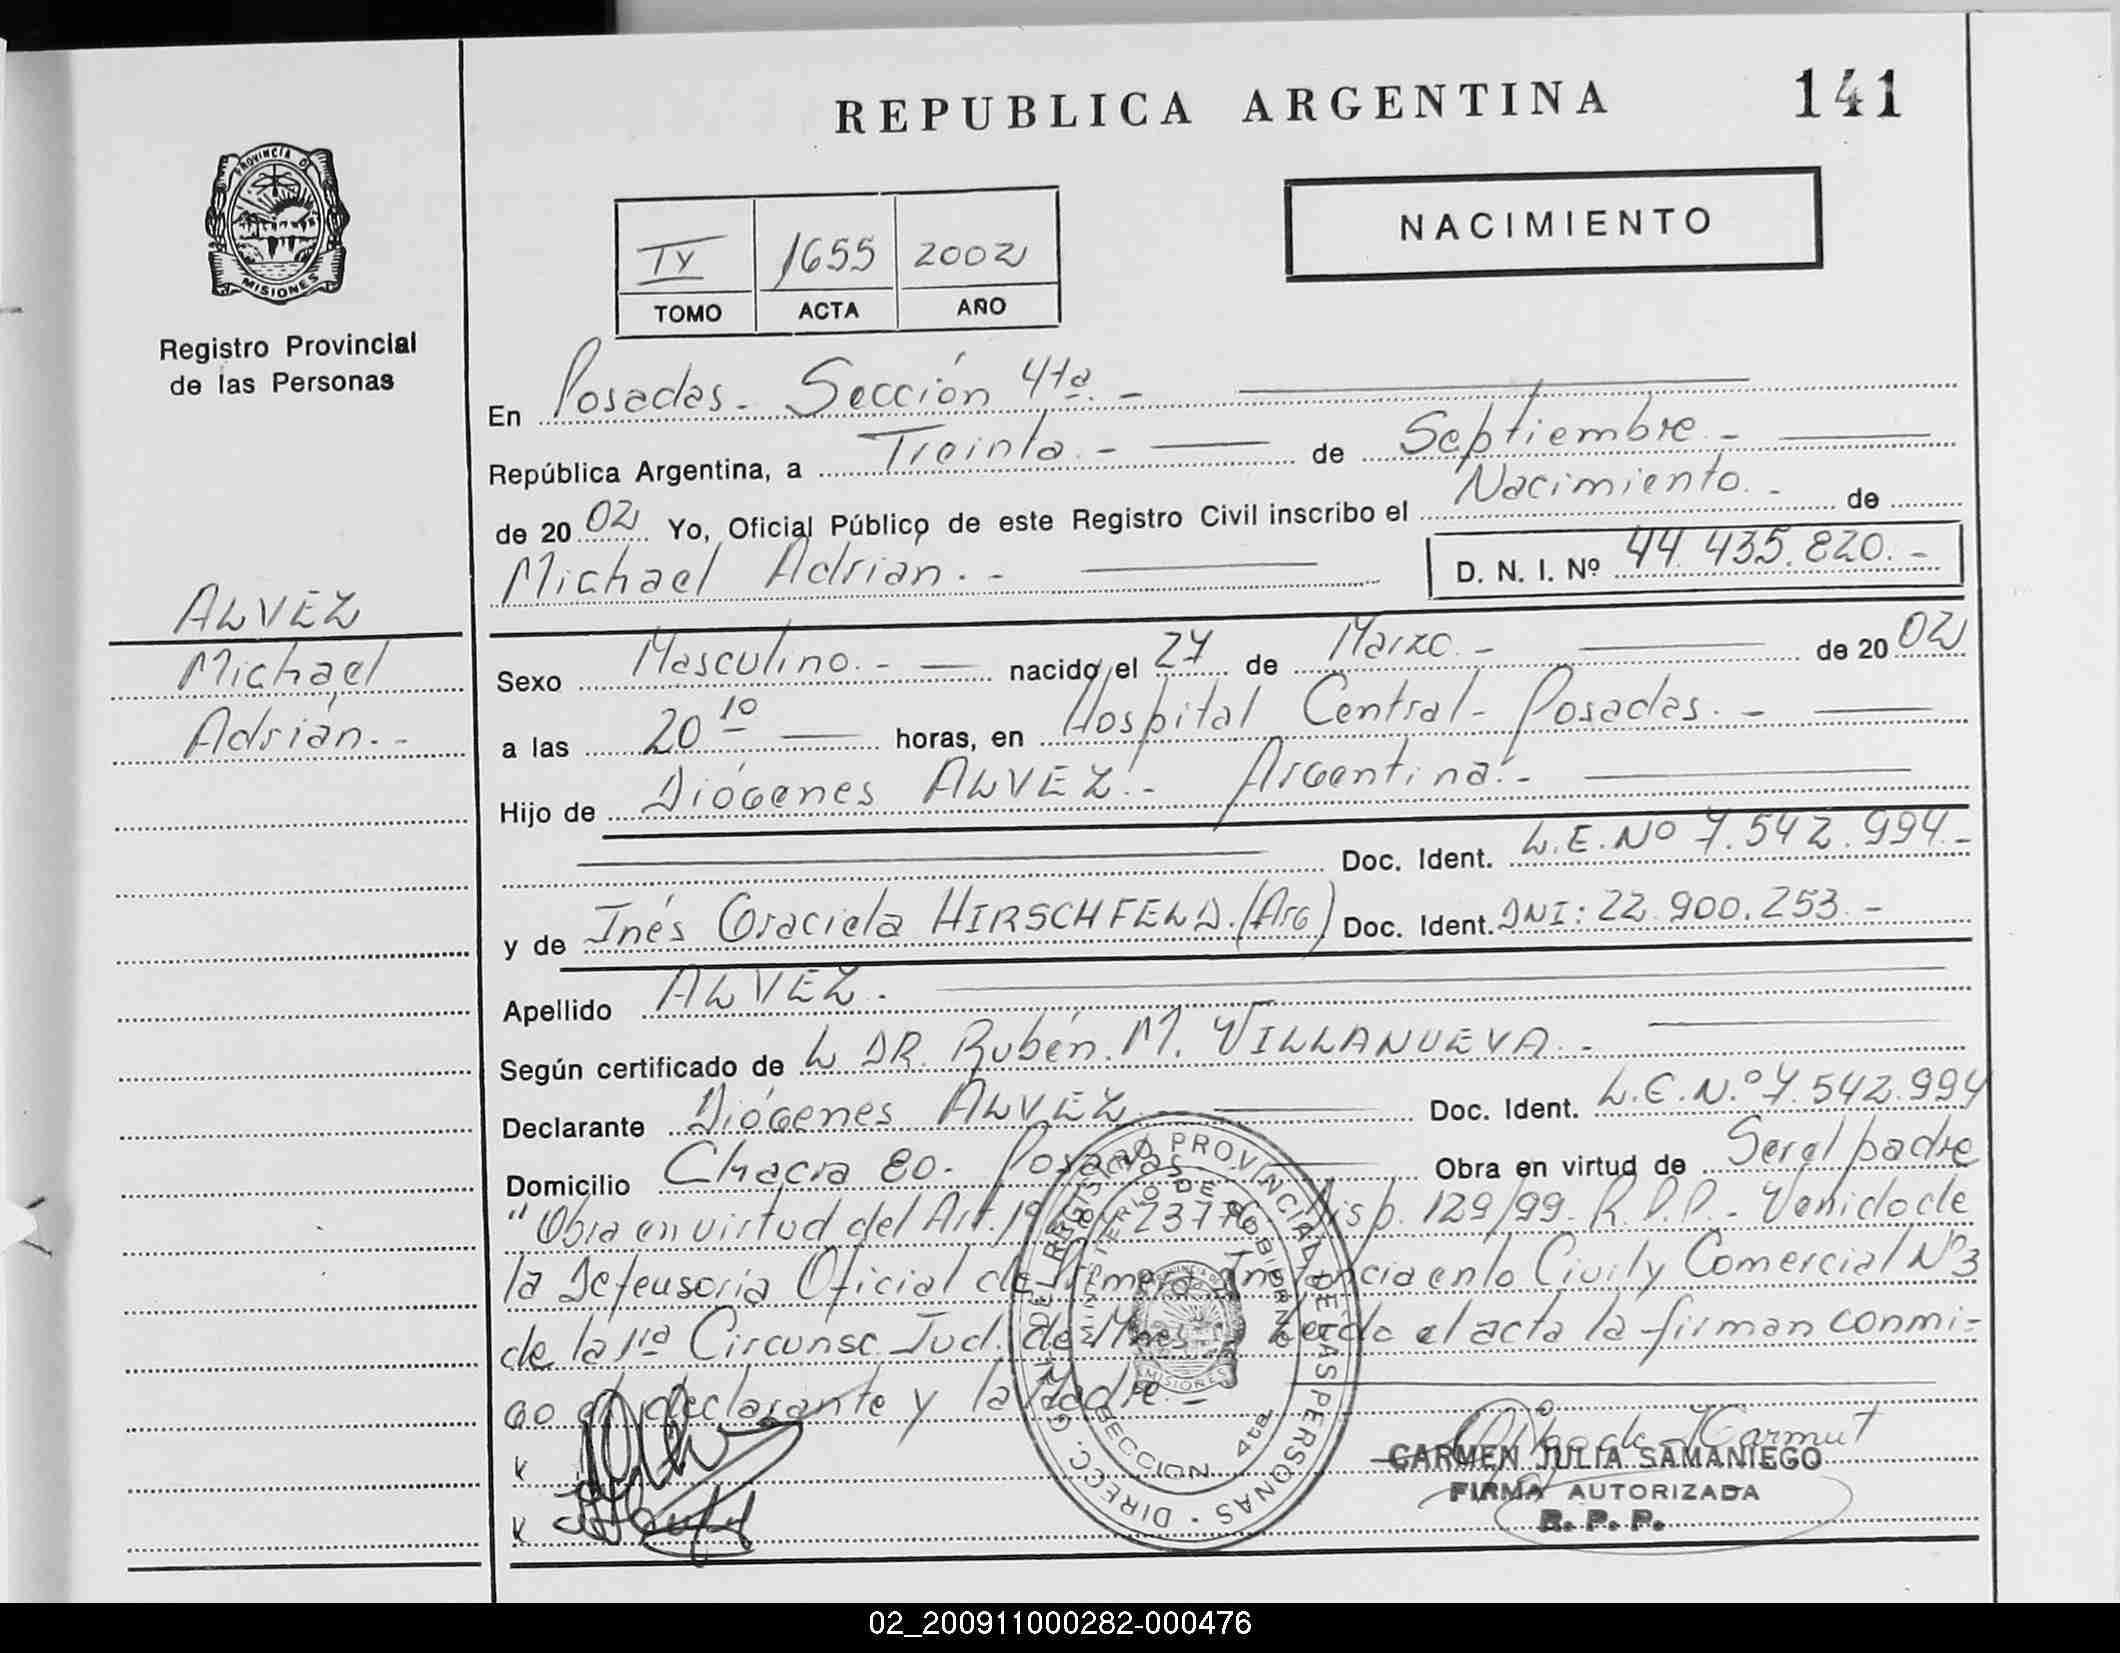 REPUBLICA ARGENTINA
141
PROVINCIA DE
MISIONES
Registro Provincial
de las Personas
NACIMIENTO
IV 1655 2002
TOMO ACTA AÑO
En Posadas. Sección 4ta. -
República Argentina, a Treinta. - de Septiembre. -
de 2002 Yo, Oficial Público de este Registro Civil inscribo el Nacimiento. - de
Michael Adrian. - D. N. I. Nº 44.435.820. -
ALVEZ
Michael
Adrián. -
Sexo Masculino. - nacido el 27 de Marzo. - de 2002
a las 20 10 horas, en Hospital Central - Posadas. -
Hijo de Diógenes ALVEZ. - Argentina. -
Doc. Ident. L.E. Nº 7.542.994. -
y de Inés Graciela HIRSCHFELD. (Arg) Doc. Ident. DNI: 22.900.253. -
Apellido ALVEZ.
Según certificado de L DR. Rubén. M. VILLANUEVA. -
Declarante Diógenes ALVEZ Doc. Ident. L.E. N.º 7.542.994
Domicilio Chacra 80. Posadas. Obra en virtud de Ser el padre
"Obra en virtud del Art. 1º 23776 Disp. 129/99. R.P.P. - Venido de
la Defensoría Oficial de Primera Instancia en lo Civil y Comercial Nº 3
de la 1ra Circunsc. Jud. de Mnes. Leída el acta la firman conmi-
go el declarante y la Madre. -
x
x
DIRECC. GRAL. DEL REGISTRO PROVINCIAL DE LAS PERSONAS
MINISTERIO DE GOBIERNO
MISIONES
SECCION 4ta
CARMEN JULIA SAMANIEGO
FIRMA AUTORIZADA
R. P. P.
02_200911000282-000476